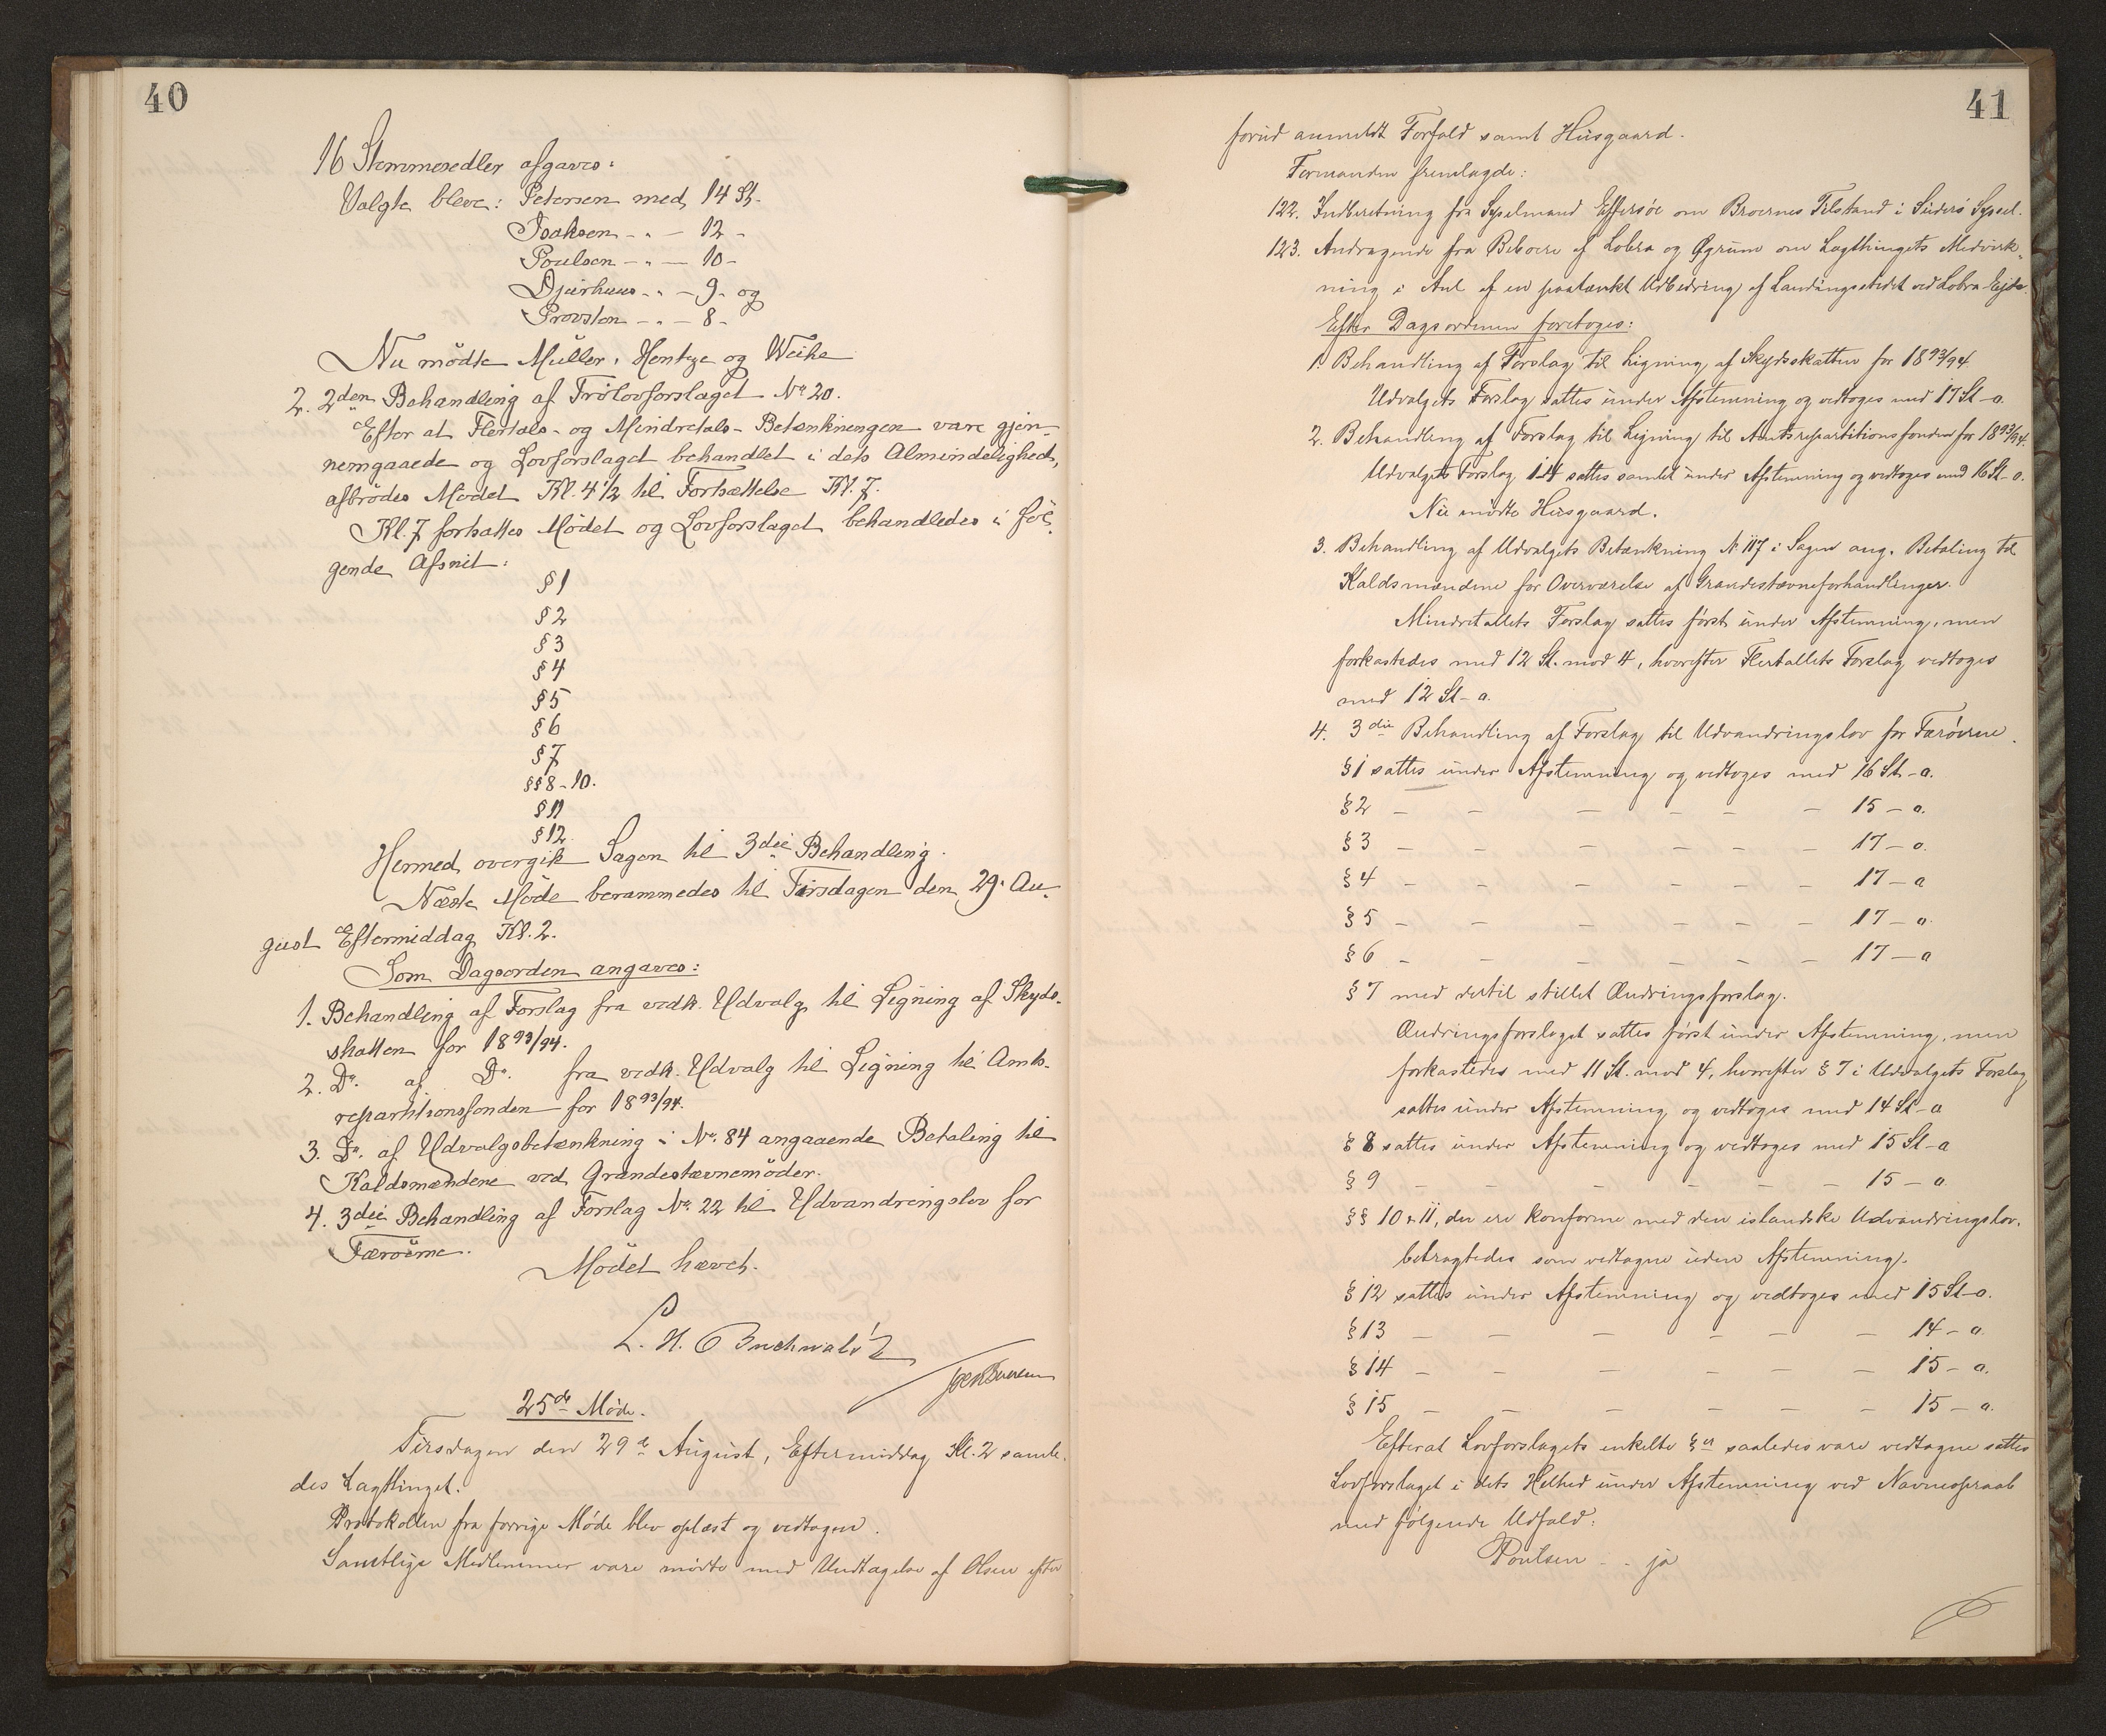 40
16 Stemmesedler afgaves:
Valgte bleve: Petersen med 14 St.
Isaksen - " - 12 -
Poulsen - " - 10 -
Djurhuus - " - 9 - og
Provsten - " - 8 -
Nu mödte Müller, Hentze og Weihe
2. 2den Behandling af Frilovforslaget No 20.
Efter at Flertals- og Mindretals-Betænkningen vare gjen-
nemgaaede og Lovforslaget behandlet i dets Almindelighed,
afbrödes Mödet Kl. 4 1/2 til Fortsættelse Kl. 7.
Kl. 7 fortsattes Mödet og Lovforslaget behandledes i föl-
gende Afsnit:
§ 1
§ 2
§ 3
§ 4
§ 5
§ 6
§ 7
§§ 8-10.
§ 11
§ 12.
Hermed overgik Sagen til 3die Behandling.
Næste Möde berammedes til Tirsdagen den 29. Au-
gust Eftermiddag Kl. 2.
Som Dagsorden angaves:
1. Behandling af Forslag fra vedk. Udvalg til Ligning af Skyds-
skatten for 1893/94.
2. Do. af Do. fra vedk. Udvalg til Ligning til Amts-
repartitionsfonden for 1893/94.
3. Do. af Udvalgsbetænkning i No. 84 angaaende Betaling til
Kaldsmændene ved Grandestævnemöder.
4. 3die Behandling af Forslag No. 22 til Udvandringslov for
Færöerne.
Mödet hævet.
L. H. Buchwaldt
25de Møde.
Tirsdagen den 29de August, Eftermiddag Kl. 2 samle-
des Lagthinget.
Protokollen fra forrige Møde blev oplæst og vedtagen.
Samtlige Medlemmer vare mødte med Undtagelse af Olsen efter
41
forud anmeldt Forfald samt Husgaard.
Formanden fremlagde:
122. Indberetning fra Sysselmand Effersøe om Broernes Tilstand i Suderø Syssel.
123. Andragende fra Beboere af Lobra og Øgrum om Lagthingets Medvirk-
ning i Anl. af en paatænkt Udbedring af Landingsstedet ved Lobra Ejde.
Efter Dagsordenen foretoges:
1. Behandling af Forslag til Ligning af Skydsskatten for 1893/94
Udvalgets Forslag sattes under Afstemning og vedtoges med 17 St - o.
2. Behandling af Forslag til Ligning til Amtsrepartitionsfonden for 1893/94.
Udvalgets Forslag 1-4 sattes samlet under Afstemning og vedtoges med 16 St - o.
Nu mødte Husgaard.
3. Behandling af Udvalgets Betænkning No 117 i Sagen ang. Betaling til
Kaldsmændene for Overværelse af Grandestævneforhandlinger.
Mindretallets Forslag sattes først under Afstemning, men
forkastedes med 12 St. mod 4, hvorefter Flertallets Forslag vedtoges
med 12 St - o.
4. 3die Behandling af Forslag til Udvandringslov for Færøerne.
§ 1 sattes under Afstemning og vedtoges med 16 St - o.
§ 2 - - - - - - 15 - o.
§ 3 - - - - - - 17 - o.
§ 4 - - - - - - 17 - o
§ 5 - - - - - - 17 - o.
§ 6 - - - - - - 17 - o
§ 7 med dertil stillet Ændringsforslag.
Ændringsforslaget sattes først under Afstemning, men
forkastedes med 11 St. mod 4, hvorefter § 7 i Udvalgets Forslag
sattes under Afstemning og vedtoges med 14 St - o
§ 8 sattes under Afstemning og vedtoges med 15 St - o
§ 9 - - - - - 15 - o
§§ 10 & 11, der ere konforme med den islandske Udvandringslov,
betragtedes som vedtagne uden Afstemning.
§ 12 sattes under Afstemning og vedtoges med 15 St - o.
§ 13 - - - - - - 14 - o.
§ 14 - - - - - - 15 - o.
§ 15 - - - - - - 15 - o.
Efterat Lovforslagets enkelte §er saaledes vare vedtagne sattes
Lovforslaget i dets Helhed under Afstemning ved Navneopraab
med følgende Udfald:
Poulsen - - ja